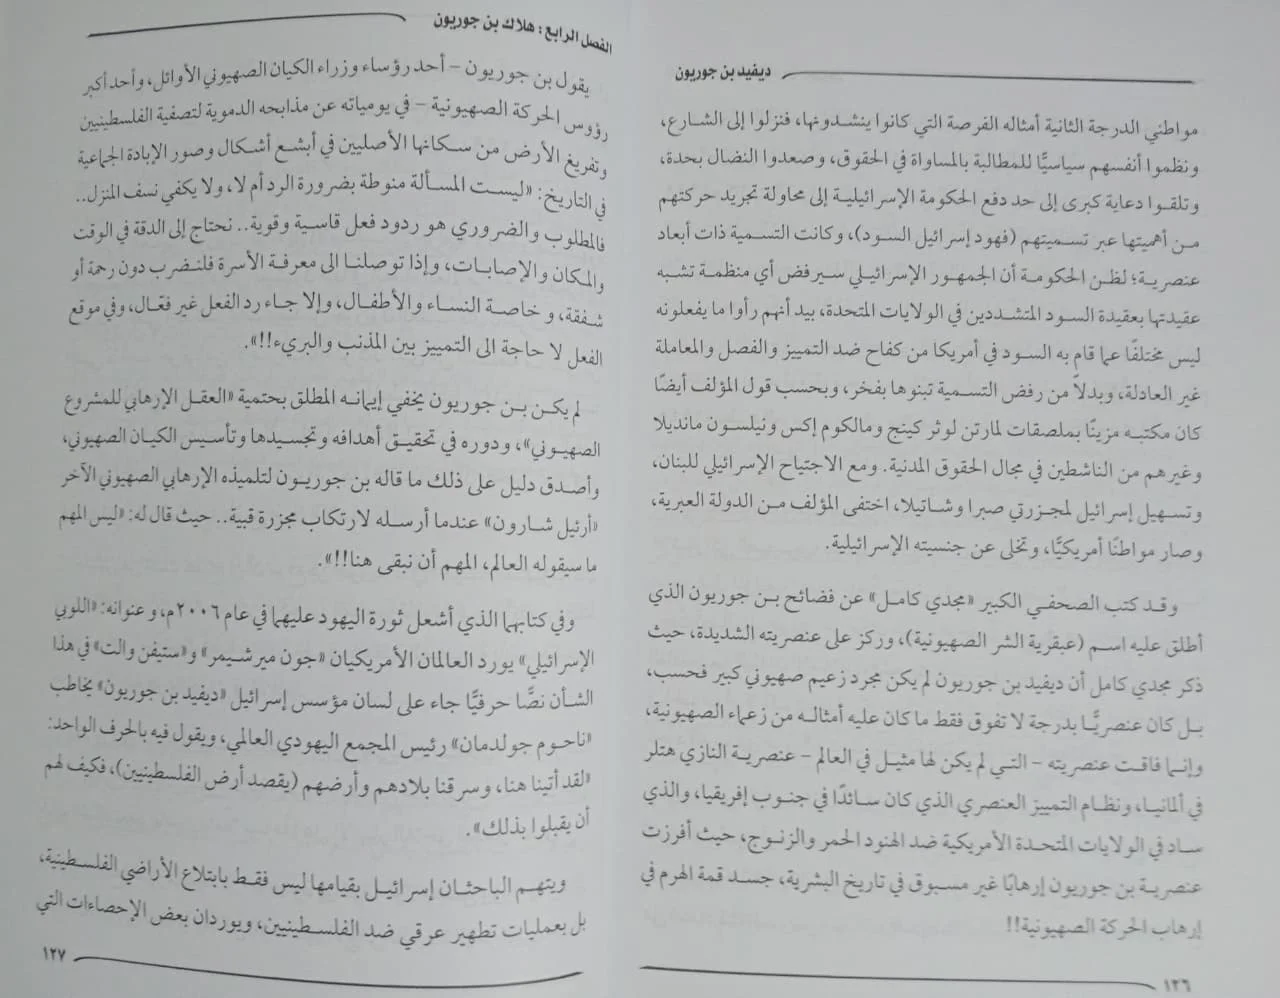 ديفيد بن جوريون
مواطني الدرجة الثانية أمثاله الفرصة التي كانوا ينشدونها، فنزلوا إلى الشارع،
ونظموا أنفسهم سياسيًّا للمطالبة بالمساواة في الحقوق، وصعدوا النضال بحدة،
وتلقوا دعاية كبرى إلى حد دفع الحكومة الإسرائيلية إلى محاولة تجريد حركتهم
من أهميتها عبر تسميتهم (فهود إسرائيل السود)، وكانت التسمية ذات أبعاد
عنصرية؛ لظن الحكومة أن الجمهور الإسرائيلي سيرفض أي منظمة تشبه
عقيدتها بعقيدة السود المتشددين في الولايات المتحدة، بيد أنهم رأوا ما يفعلونه
ليس مختلفًا عما قام به السود في أمريكا من كفاح ضد التمييز والفصل والمعاملة
غير العادلة، وبدلاً من رفض التسمية تبنوها بفخر، وبحسب قول المؤلف أيضًا
كان مكتبه مزينًا بملصقات لمارتن لوثر كينج ومالكوم إكس ونيلسون مانديلا
وغيرهم من الناشطين في مجال الحقوق المدنية. ومع الاجتياح الإسرائيلي للبنان،
وتسهيل إسرائيل لمجزرتي صبرا وشاتيلا، اختفى المؤلف من الدولة العبرية،
وصار مواطنًا أمريكيًّا، وتخلى عن جنسيته الإسرائيلية.
وقد كتب الصحفي الكبير «مجدي كامل» عن فضائح بن جوريون الذي
أطلق عليه اسم (عبقرية الشر الصهيونية)، وركز على عنصريته الشديدة، حيث
ذكر مجدي كامل أن ديفيد بن جوريون لم يكن مجرد زعيم صهيوني كبير فحسب،
بل كان عنصريًّا بدرجة لا تفوق فقط ما كان عليه أمثاله من زعماء الصهيونية،
وإنما فاقت عنصريته – التي لم يكن لها مثيل في العالم – عنصرية النازي هتلر
في ألمانيا، ونظام التمييز العنصري الذي كان سائدًا في جنوب إفريقيا، والذي
ساد في الولايات المتحدة الأمريكية ضد الهنود الحمر والزنوج، حيث أفرزت
عنصرية بن جوريون إرهابًا غير مسبوق في تاريخ البشرية، جسد قمة الهرم في
إرهاب الحركة الصهيونية!!
١٢٦
الفصل الرابع: هلاك بن جوريون
يقول بن جوريون – أحد رؤساء وزراء الكيان الصهيوني الأوائل، وأحد أكبر
رؤوس الحركة الصهيونية – في يومياته عن مذابحه الدموية لتصفية الفلسطينيين
وتفريغ الأرض من سكانها الأصليين في أبشع أشكال وصور الإبادة الجماعية
في التاريخ: «ليست المسألة منوطة بضرورة الرد أم لا، ولا يكفي نسف المنزل..
فالمطلوب والضروري هو ردود فعل قاسية وقوية.. نحتاج إلى الدقة في الوقت
والمكان والإصابات، وإذا توصلنا الى معرفة الأسرة فلنضرب دون رحمة أو
شفقة، و خاصة النساء والأطفال، وإلا جاء رد الفعل غير فعّال، وفي موقع
الفعل لا حاجة الى التمييز بين المذنب والبريء!!».
لم يكن بن جوريون يخفي إيمانه المطلق بحتمية «العقل الإرهابي للمشروع
الصهيوني»، ودوره في تحقيق أهدافه وتجسيدها وتأسيس الكيان الصهيوني،
وأصدق دليل على ذلك ما قاله بن جوريون لتلميذه الإرهابي الصهيوني الآخر
«أرئيل شارون» عندما أرسله لارتكاب مجزرة قبية.. حيث قال له: «ليس المهم
ما سيقوله العالم، المهم أن نبقى هنا!!».
وفي كتابهما الذي أشعل ثورة اليهود عليهما في عام ٢٠٠٦م، وعنوانه: «اللوبي
الإسرائيلي» يورد العالمان الأمريكيان «جون ميرشيمر» و«ستيفن والت» في هذا
الشأن نصًّا حرفيًّا جاء على لسان مؤسس إسرائيل «ديفيد بن جوريون» يخاطب
«ناحوم جولدمان» رئيس المجمع اليهودي العالمي، ويقول فيه بالحرف الواحد:
«لقد أتينا هنا، وسرقنا بلادهم وأرضهم (يقصد أرض الفلسطينيين)، فكيف لهم
أن يقبلوا بذلك».
ويتهم الباحثان إسرائيل بقيامها ليس فقط بابتلاع الأراضي الفلسطينية،
بل بعمليات تطهير عرقي ضد الفلسطينيين، ويوردان بعض الإحصاءات التي
١٢٧